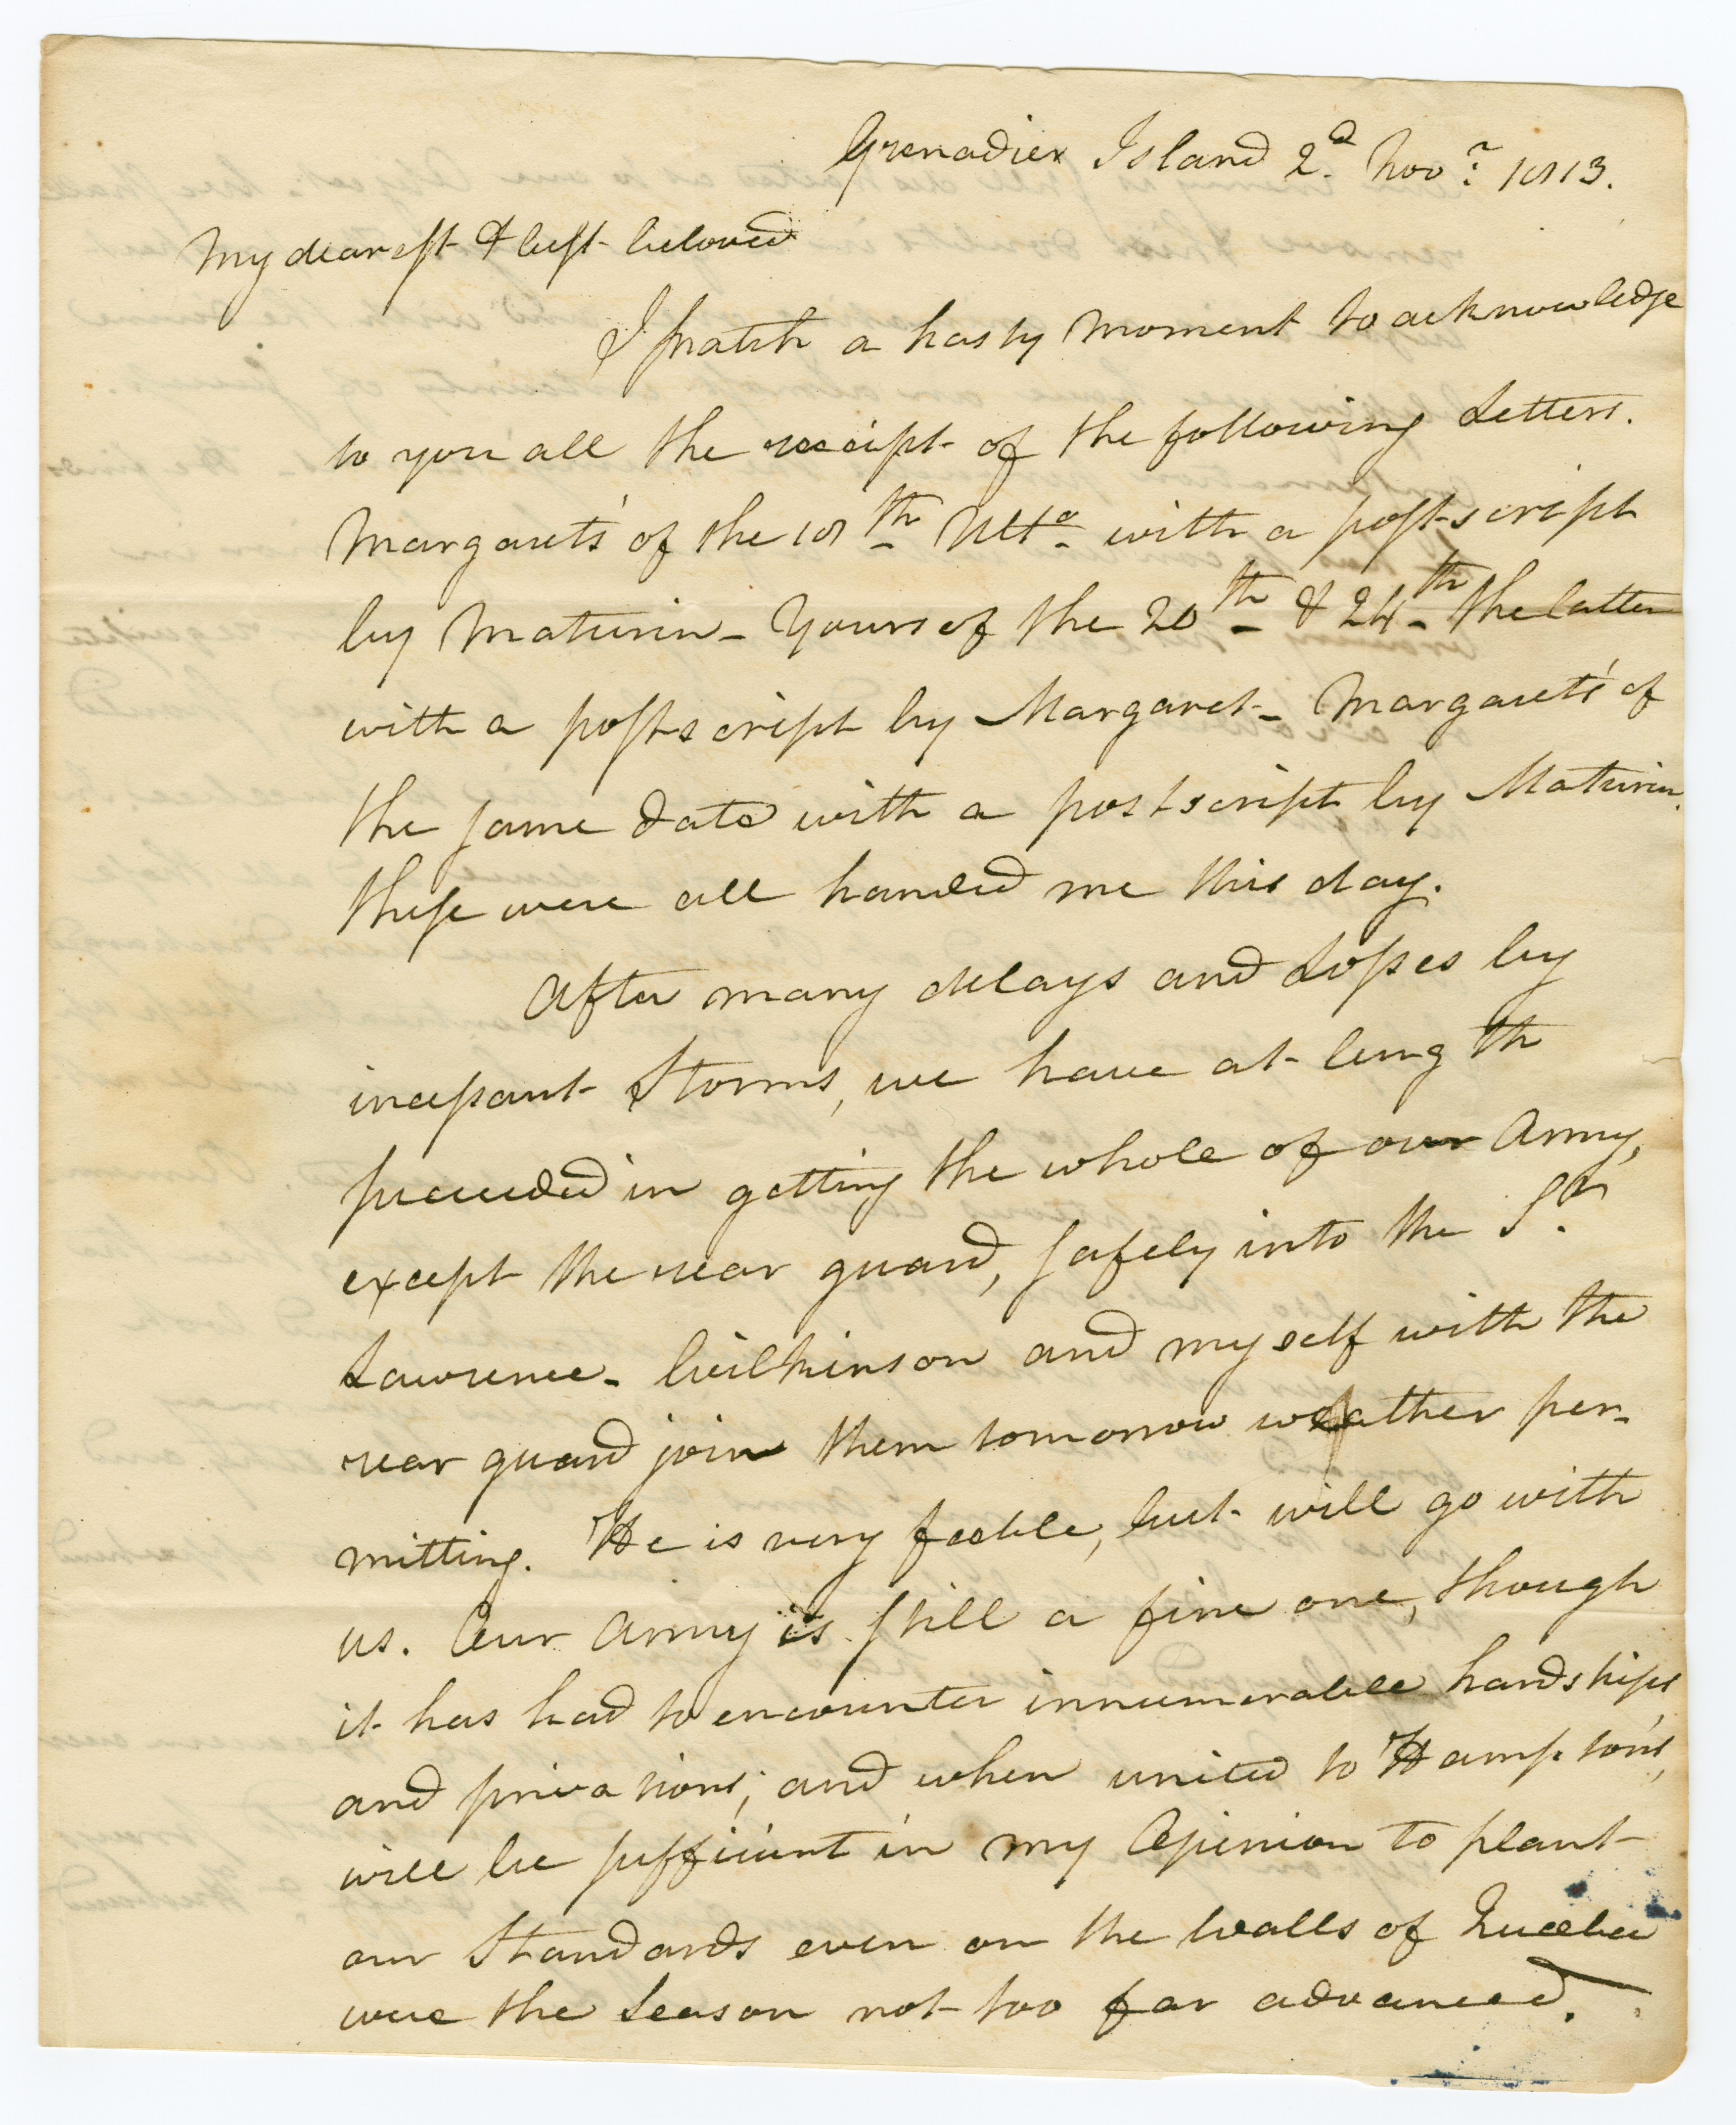 Grenadier Island 2d. Novr. 1813.
My dearest & best beloved
I snatch a hasty moment to acknowledge
to you all the receipt of the following Letters.
Margaret's of the 18th Ulto. with a postscript
by Maturin - Yours of the 20th & 24th the latter
with a postscript by Margaret - Margaret's of
the same date with a postscript by Maturin.
these were all handed me this day.
After many delays and Losses by
incessant Storms, we have at length
succeeded in getting the whole of our Army,
except the rear guard, safely into the St.
Lawrence - Wilkinson and myself with the
rear guard join them tomorrow weather per-
mitting. He is very feeble, but will go with
us. Our Army is still a fine one, though
it has had to encounter innumerable hardships
and privations; and when united to Hampton's,
will be sufficient in my Opinion to plant
our Standards even on the Walls of Quebec
were the Season not too far advanced.